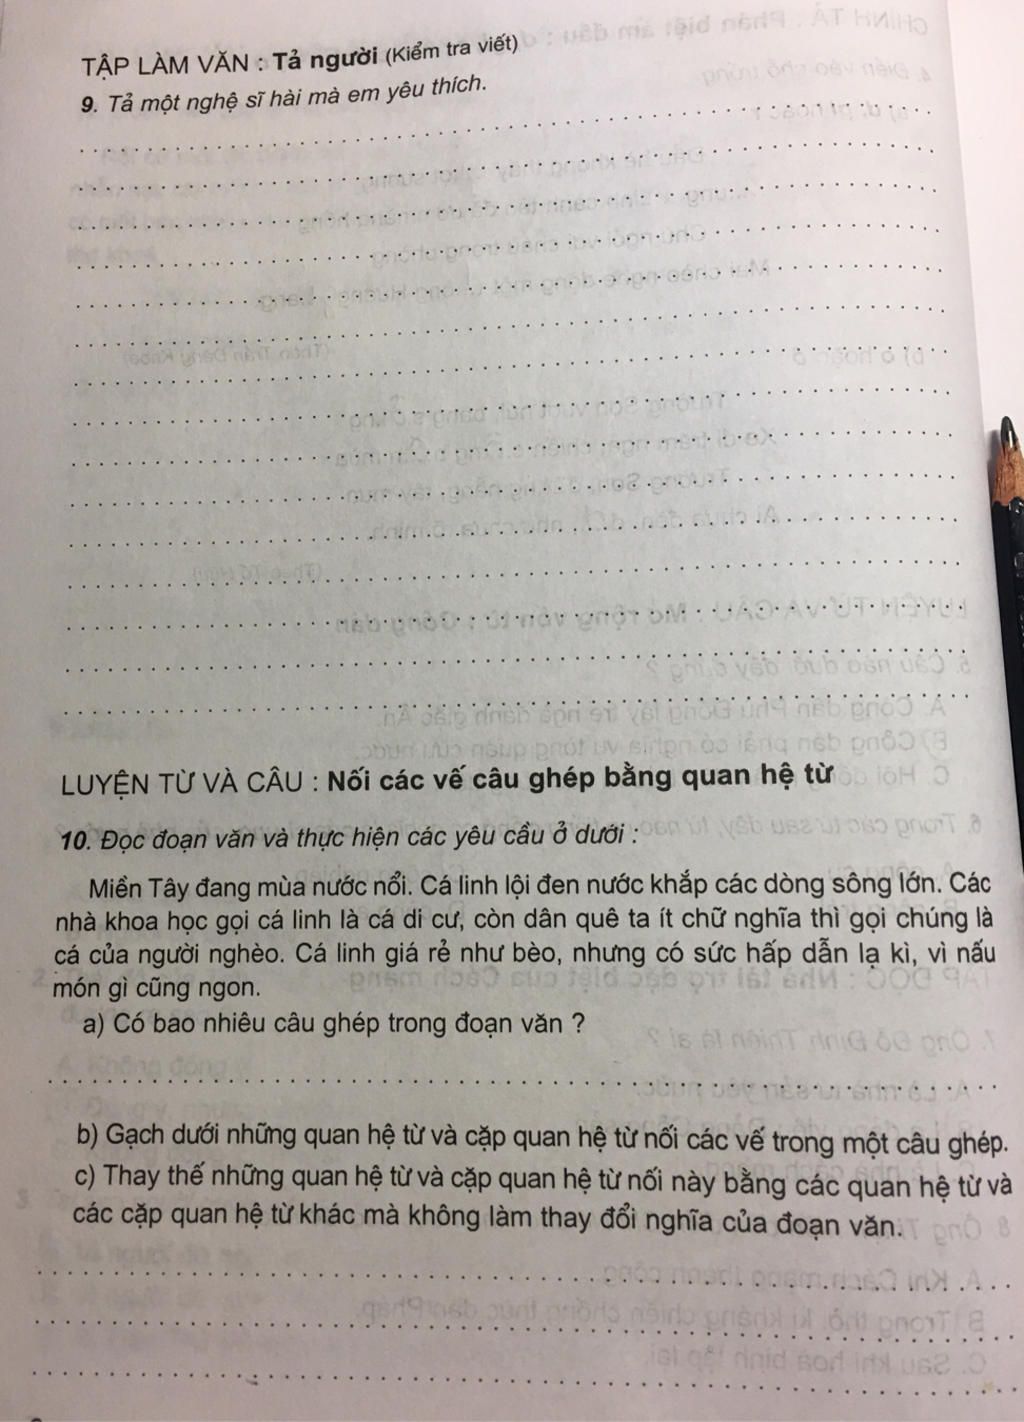 TẬP LÀM VĂN : Tả người (Kiểm tra viết)
9. Tả một nghệ sĩ hài mà em yêu thích.
LUYỆN TỪ VÀ CÂU : Nối các vế câu ghép bằng quan hệ từ
10. Đọc đoạn văn và thực hiện các yêu cầu ở dưới :
Miền Tây đang mùa nước nổi. Cá linh lội đen nước khắp các dòng sông lớn. Các
nhà khoa học gọi cá linh là cá di cư, còn dân quê ta ít chữ nghĩa thì gọi chúng là
cá của người nghèo. Cá linh giá rẻ như bèo, nhưng có sức hấp dẫn lạ kì, vì nấu
món gì cũng ngon.
a) Có bao nhiêu câu ghép trong đoạn văn ?
b) Gạch dưới những quan hệ từ và cặp quan hệ từ nối các vế trong một câu ghép.
c) Thay thế những quan hệ từ và cặp quan hệ từ nối này bằng các quan hệ từ và
các cặp quan hệ từ khác mà không làm thay đổi nghĩa của đoạn văn.